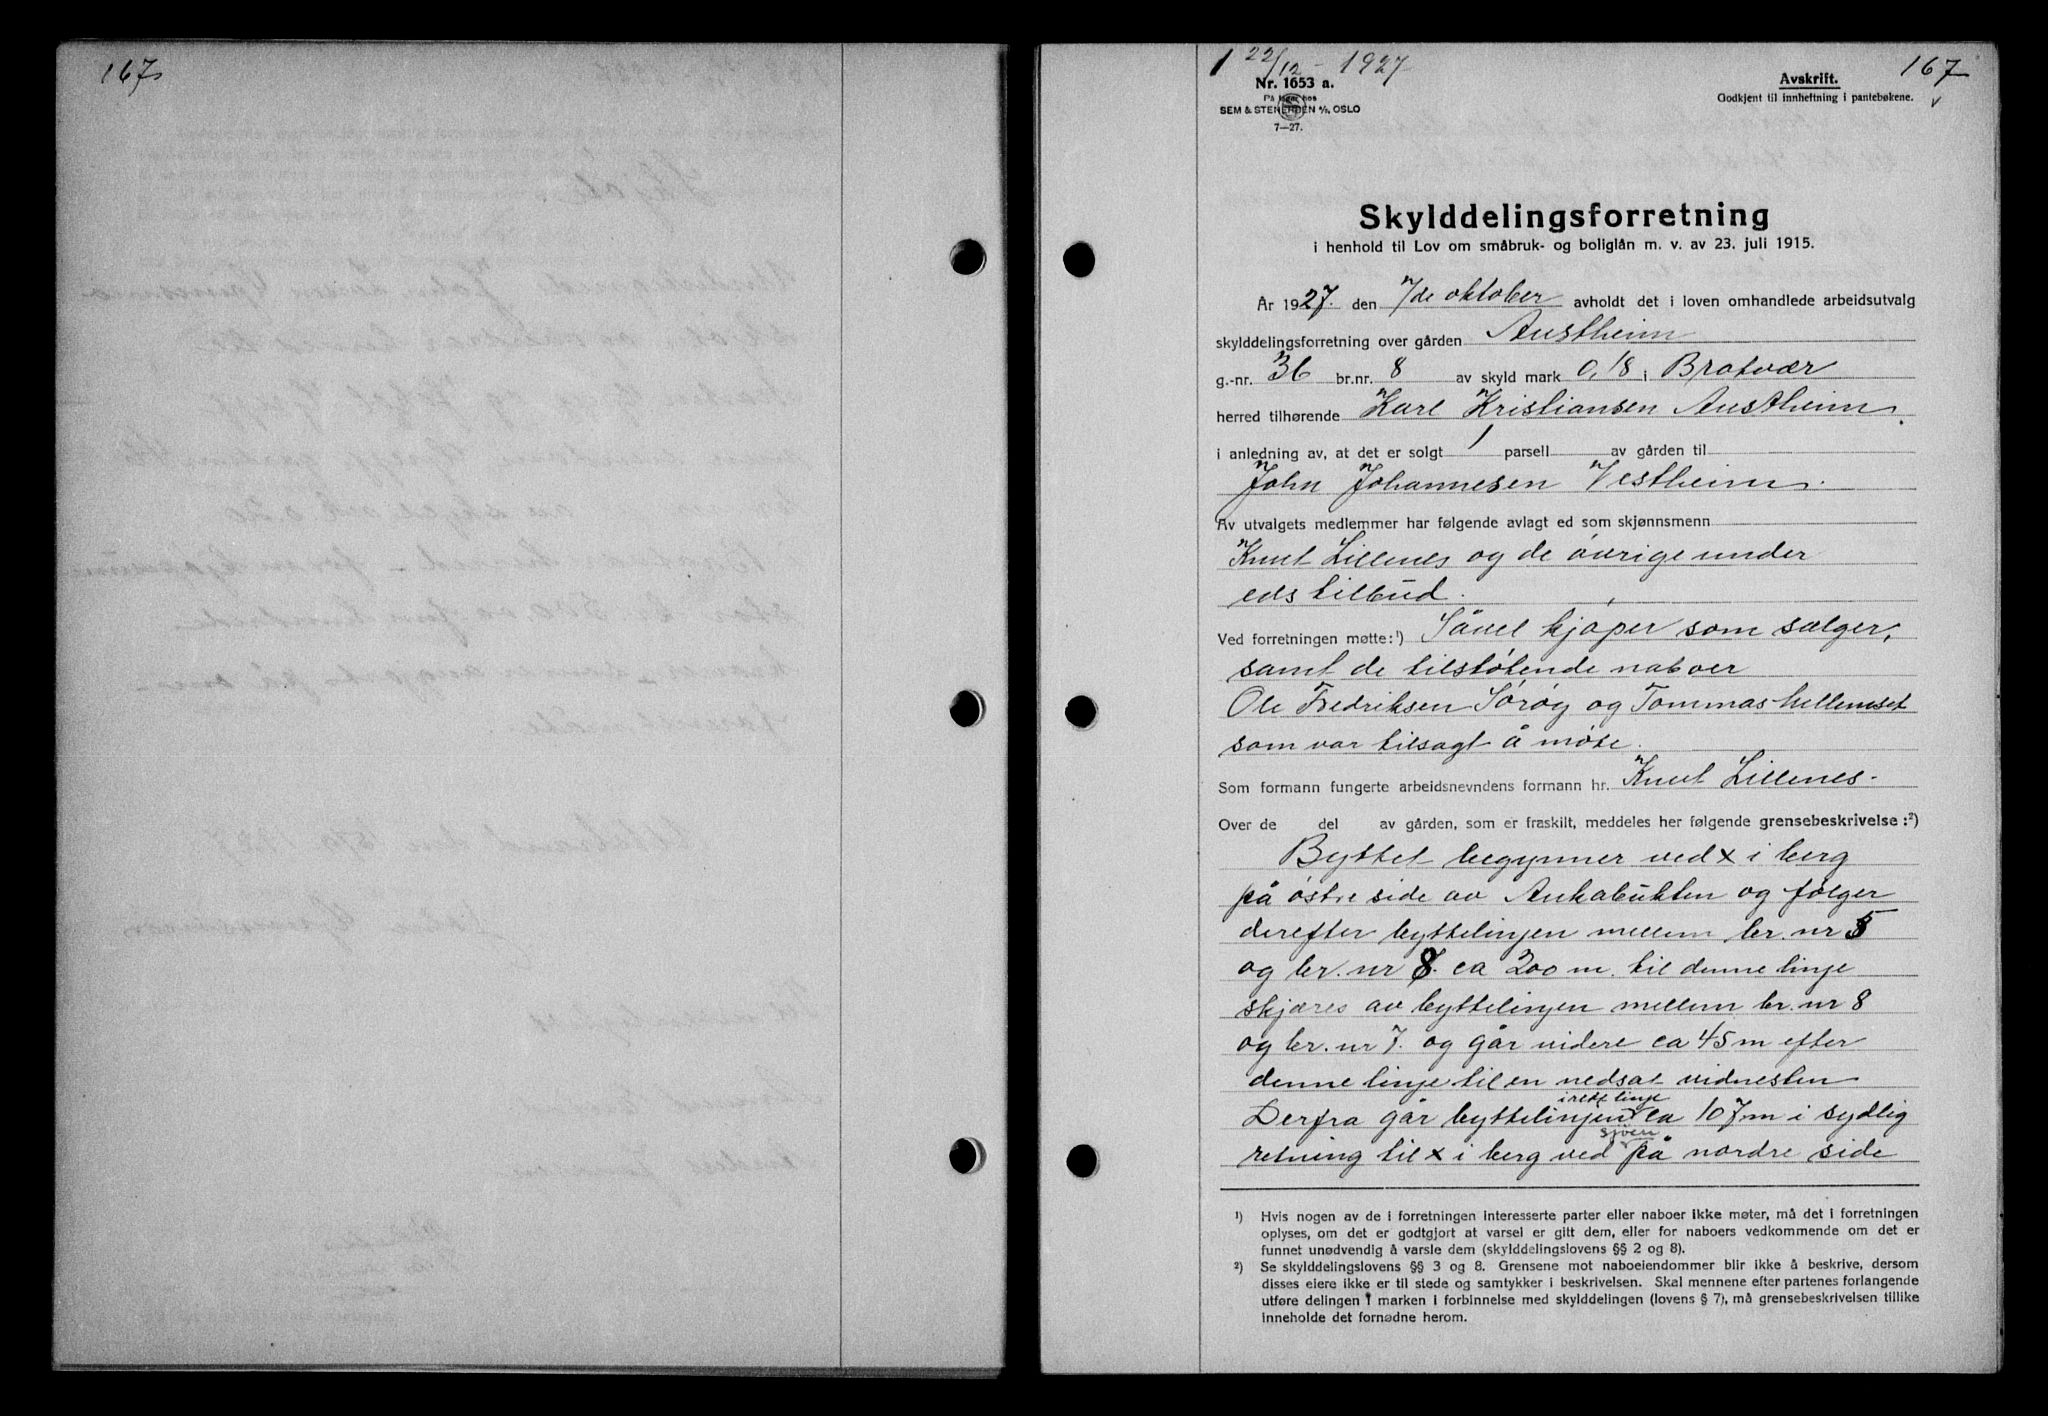 167
1 22/12 - 1927
Nr. 1653 a.
På lager hos
SEM & STENERSEN A/S, OSLO
7—27.
Avskrift.
Godkjent til innheftning i pantebøkene.
167
Skylddelingsforretning
i henhold til Lov om småbruk- og boliglån m. v. av 23. juli 1915.
År 1927. den 7/de oktober avholdt det i loven omhandlede arbeidsutvalg
skylddelingsforretning over gården Austheim
g.-nr. 36 br.nr. 8 av skyld mark 0,18 i Bratvær
herred tilhørende Karl Kristiansen Austheim.
i anledning av, at det er solgt 1 parsell av gården til
John Johannesen Vestheim.
Av utvalgets medlemmer har følgende avlagt ed som skjønnsmenn
Knut Lillenes og de øvrige under
eds tilbud.
Ved forretningen møtte:¹) Såvel kjøper som sælger,
samt de tilstøtende naboer
Ole Fredriksen Sørøy og Tommas
som var tilsagt å møte.
Som formann fungerte arbeidsnevndens formann hr. Knut Lillenes.
Over de del av gården, som er fraskilt, meddeles her følgende grensebeskrivelse:²)
Byttet begynner ved x i berg
på østre side av Ankabukten og følger
derefter byttelinjen mellem br. nr 5
og br. nr 8. ca 200 m. til denne linje
skjæres av byttelinjen mellem br. nr 8
og br. nr 7. og går videre ca 45 m efter
denne linje til en nedsat vidnesten
i rett linje
Derfra går byttelinjen ca 107 m i sydlig
sjøen
retning til x i berg ved på nordre side
¹) Hvis nogen av de i forretningen interesserte parter eller naboer ikke møter, må det i forretningen
oplyses, om det er godtgjort at varsel er gitt dem, eller for naboers vedkommende om det er
funnet unødvendig å varsle dem (skylddelingslovens §§ 2 og 8).
²) Se skylddelingslovens §§ 3 og 8. Grensene mot naboeiendommer blir ikke å beskrive, dersom
disses eiere ikke er til stede og samtykker i beskrivelsen. Skal mennene efter partenes forlangende
utføre delingen i marken i forbinnelse med skylddelingen (lovens § 7), må grensebeskrivelsen tillike
inneholde det fornødne herom.